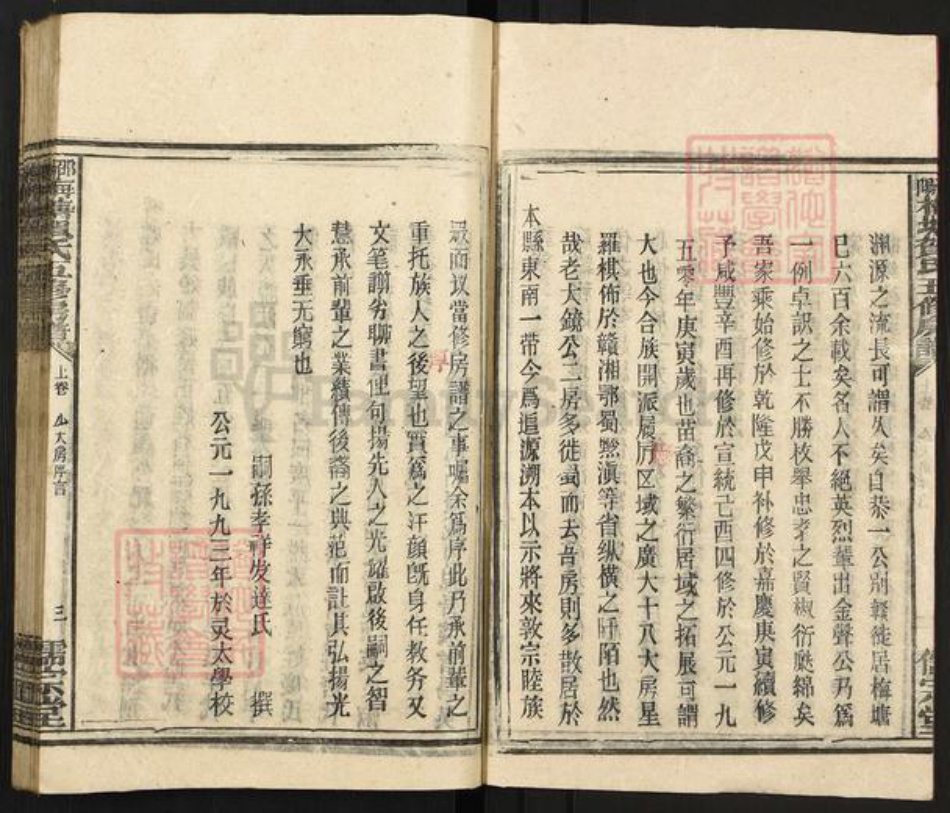 淵源之流長可謂久矣自恭一公別贛徙居梅塘
已六百余載矣名人不絕英烈輩出金聲公乃爲
一例卓識之士不勝枚舉忠孝之賢椒衍瓞綿矣
吾家乘始修於乾隆戊申补修於嘉慶庚寅續修
予咸豐辛酉再修於宣統己酉四修於公元一九
五零年庚寅歲也苗裔之繁衍居域之拓展可謂
大也今合族開派屐历区域之廣大十八大房星
羅棋佈於贛湘鄂蜀黔滇等省纵横之阡陌也然
哉老大鏡公二房多徙蜀而去吾房則多散居於
本縣東南一带今爲追源溯本以示將來敦宗睦族
眾而议當修房譜之事嘱余爲序此乃承前輩之
重托族人之後望也實爲之汗顔既身任教务又
文笔謭劣聊書俚句揚先人之光耀啟後嗣之智
慧承前輩之業績傳後裔之典范而註其弘揚光
大永垂无窮也
嗣孫孝祥发達氏 撰
公元一九九三年於灵太學校
上卷
大房序言
三